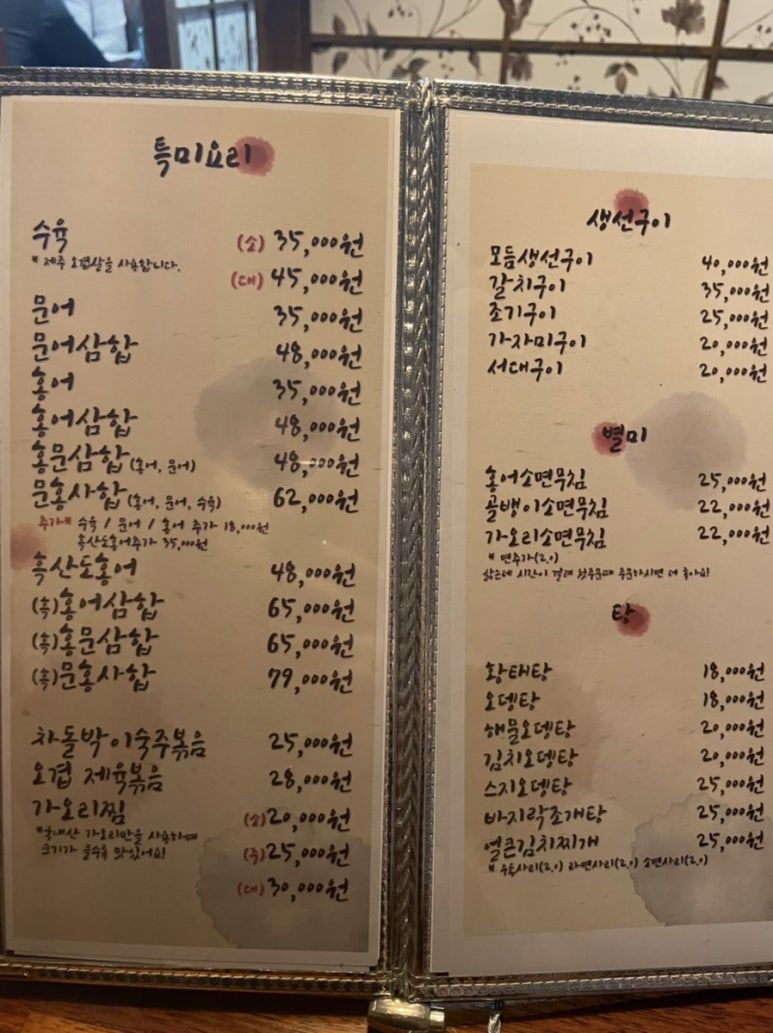 특미요리
수육 (소) 35,000원
* 제주 오겹살을 사용합니다.
(대) 45,000원
문어 35,000원
문어삼합 48,000원
홍어 35,000원
홍어삼합 48,000원
홍문삼합(홍어, 문어) 48,000원
문홍사합(홍어, 문어, 수육) 62,000원
추가* 수육 / 문어 / 홍어 추가 18,000원
흑산도홍어추가 35,000원
흑산도홍어 48,000원
(흑)홍어삼합 65,000원
(흑)홍문삼합 65,000원
(흑)문홍사합 79,000원
차돌박이숙주볶음 25,000원
오겹 제육볶음 28,000원
가오리찜 (소)20,000원
*국내산 가오리만을 사용하며
크기가 클수록 맛있어요!
(중)25,000원
(대)30,000원
생선구이
모듬생선구이 40,000원
갈치구이 35,000원
조기구이 25,000원
가자미구이 20,000원
서대구이 20,000원
별미
홍어소면무침 25,000원
골뱅이소면무침 22,000원
가오리소면무침 22,000원
* 면추가(2.0)
삶는데 시간이 걸려 첫주문때 주문하시면 더 좋아요!
탕
황태탕 18,000원
오뎅탕 18,000원
해물오뎅탕 20,000원
김치오뎅탕 20,000원
스지오뎅탕 25,000원
바지락조개탕 25,000원
얼큰김치찌개 25,000원
* 우동사리(2.0) 라면사리(2.0) 소면사리(2.0)